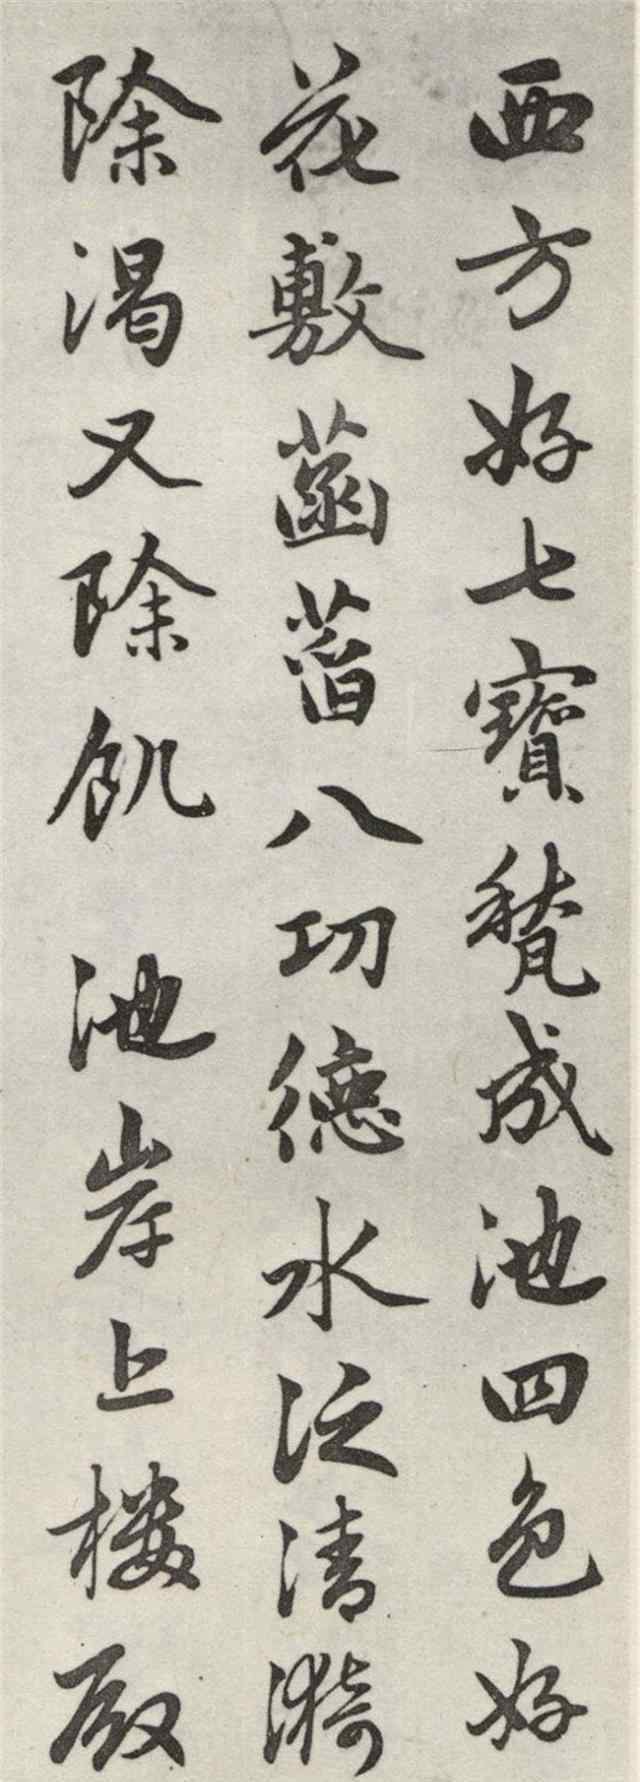 西方好七寶甃成池四色好
花敷菡萏八功德水泛清漪
除渴又除飢 池岸上樓殿